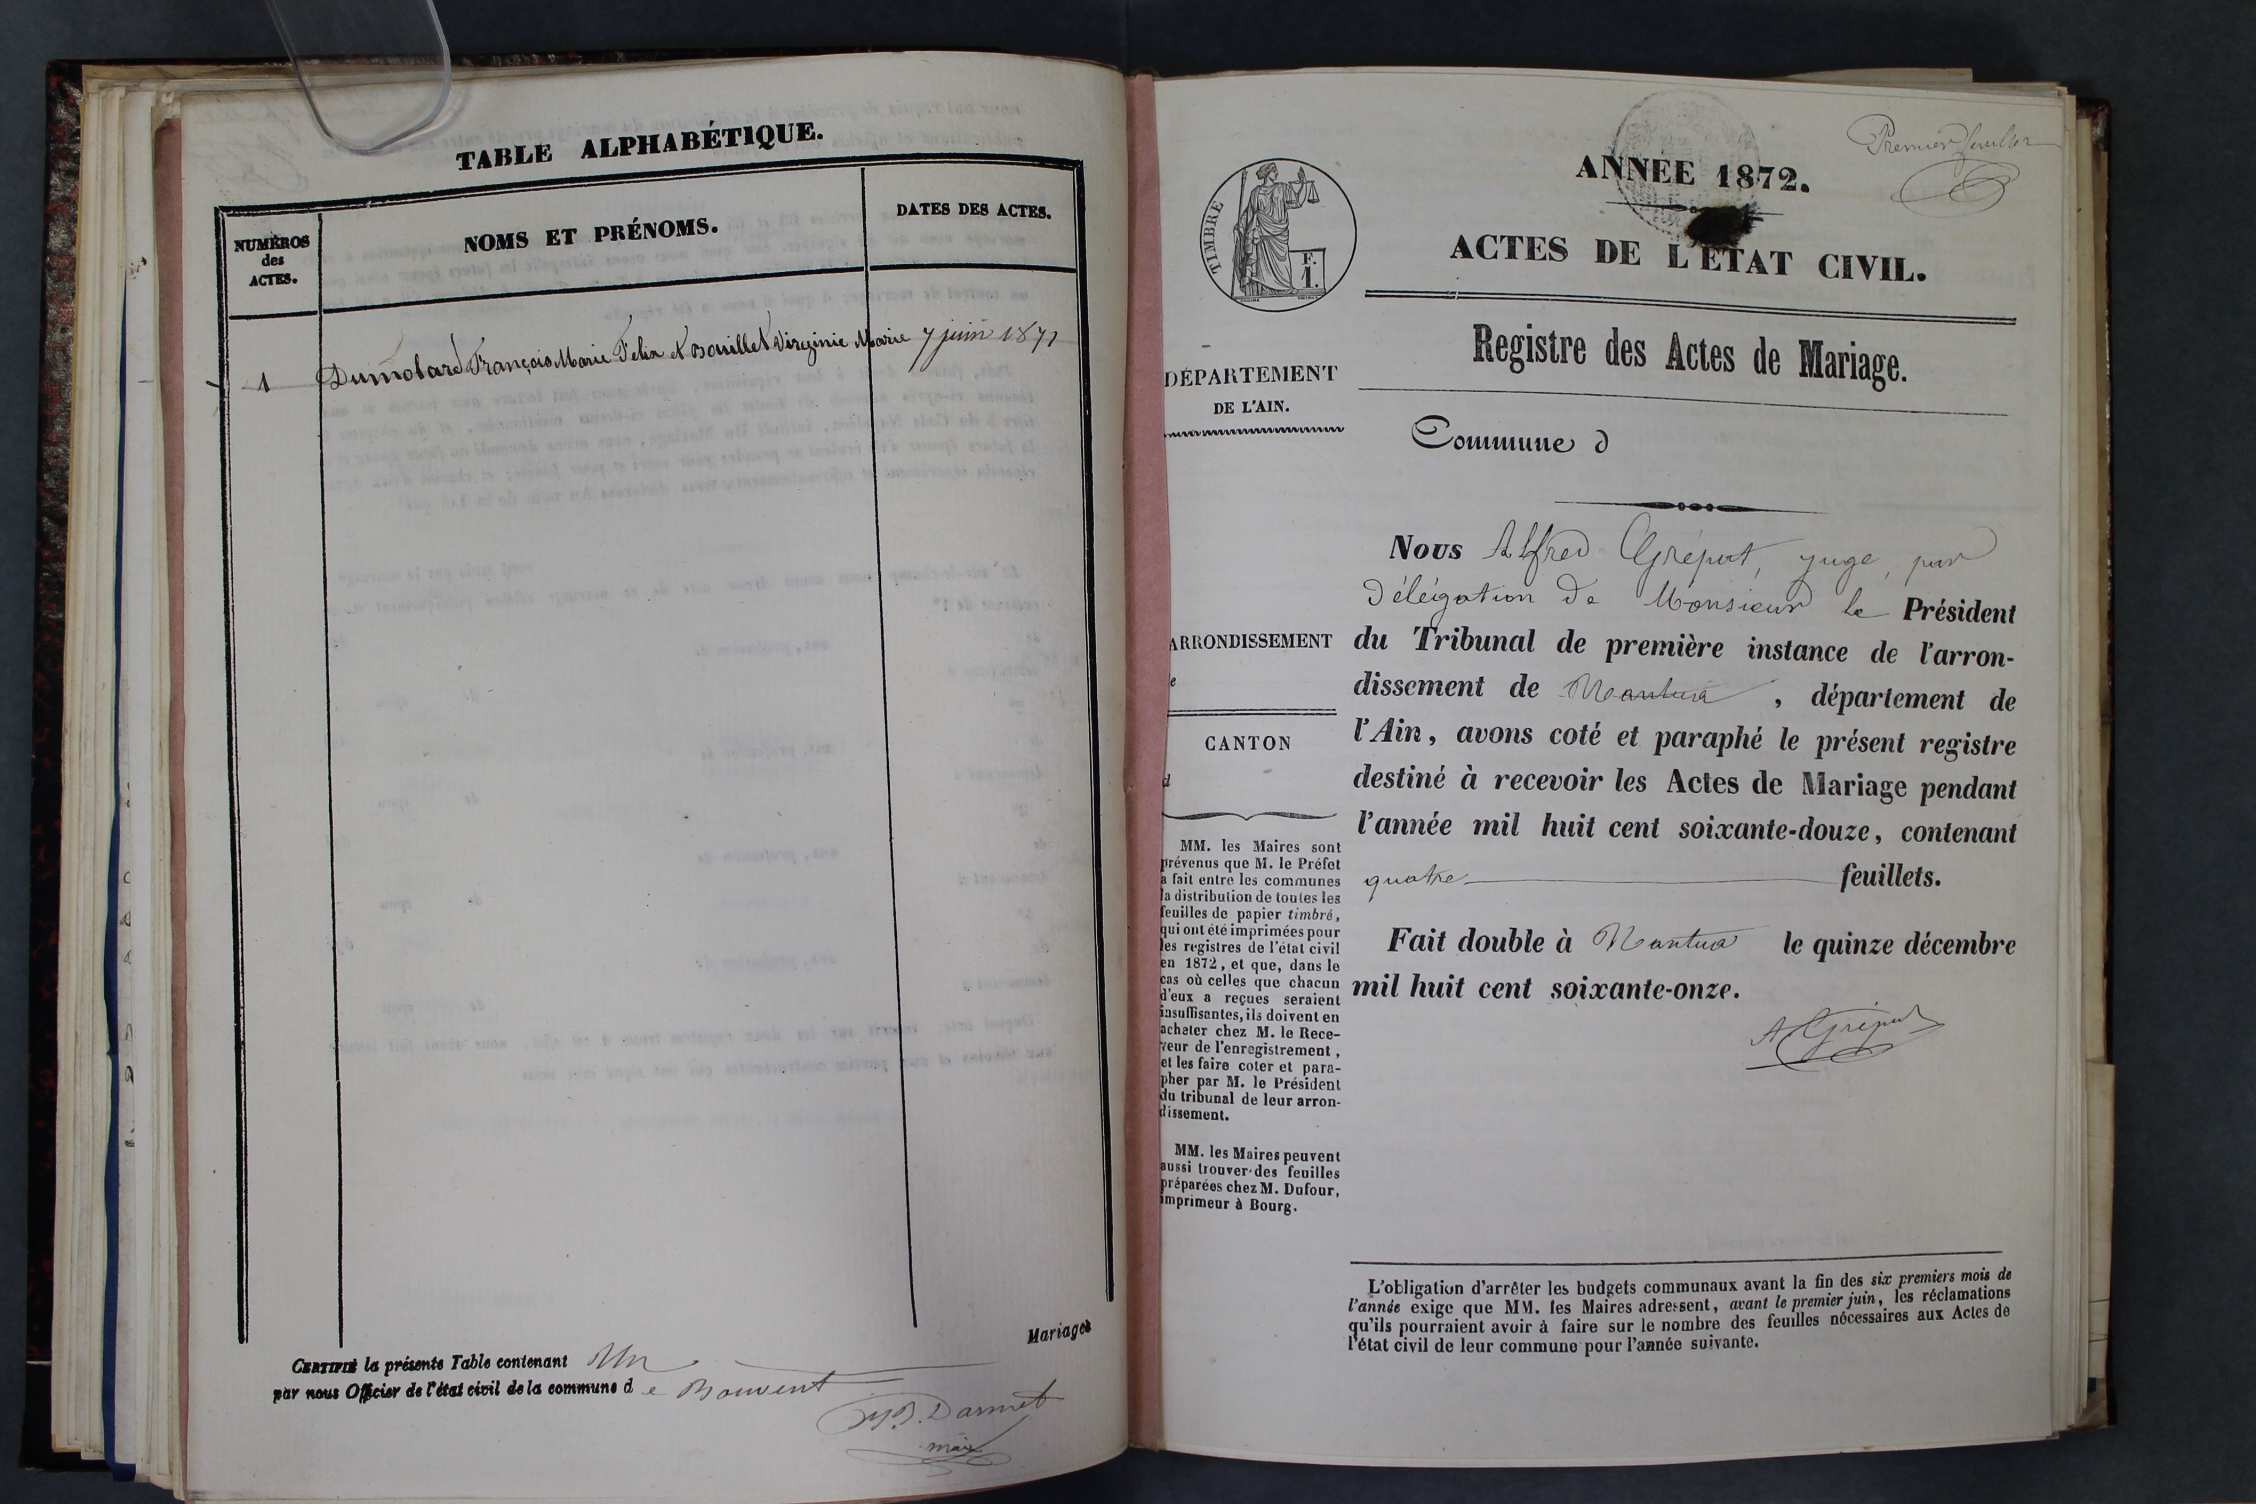 TABLE ALPHABÉTIQUE.
NUMÉROS
des
ACTES.
NOMS ET PRÉNOMS.
DATES DES ACTES.
1 Dumolard François Marie Felix et Bouillet Virginie Marie 7 juin 1871
Mariages
CERTIFIÉ la présente Table contenant Un
par nous Officier de l'état civil de la commune de Bouvent
Darmet
maire
Premier feuillet
ANNÉE 1872.
ACTES DE L'ÉTAT CIVIL.
TIMBRE
F.
1.
Registre des Actes de Mariage.
DÉPARTEMENT
DE L'AIN.
Commune d
Nous Alfred Grépat, juge, par
délégation de Monsieur le Président
ARRONDISSEMENT
e
du Tribunal de première instance de l'arron-
dissement de Nantua, département de
CANTON
d
l'Ain, avons coté et paraphé le présent registre
destiné à recevoir les Actes de Mariage pendant
l'année mil huit cent soixante-douze, contenant
quatre feuillets.
Fait double à Nantua le quinze décembre
mil huit cent soixante-onze.
A Grépat
MM. les Maires sont
prévenus que M. le Préfet
a fait entre les communes
la distribution de toutes les
feuilles de papier timbré,
qui ont été imprimées pour
les registres de l'état civil
en 1872, et que, dans le
cas où celles que chacun
d'eux a reçues seraient
insuffisantes, ils doivent en
acheter chez M. le Rece-
veur de l'enregistrement,
et les faire coter et para-
pher par M. le Président
du tribunal de leur arron-
dissement.
MM. les Maires peuvent
aussi trouver des feuilles
préparées chez M. Dufour,
imprimeur à Bourg.
L'obligation d'arrêter les budgets communaux avant la fin des six premiers mois de
l'année exige que MM. les Maires adressent, avant le premier juin, les réclamations
qu'ils pourraient avoir à faire sur le nombre des feuilles nécessaires aux Actes de
l'état civil de leur commune pour l'année suivante.